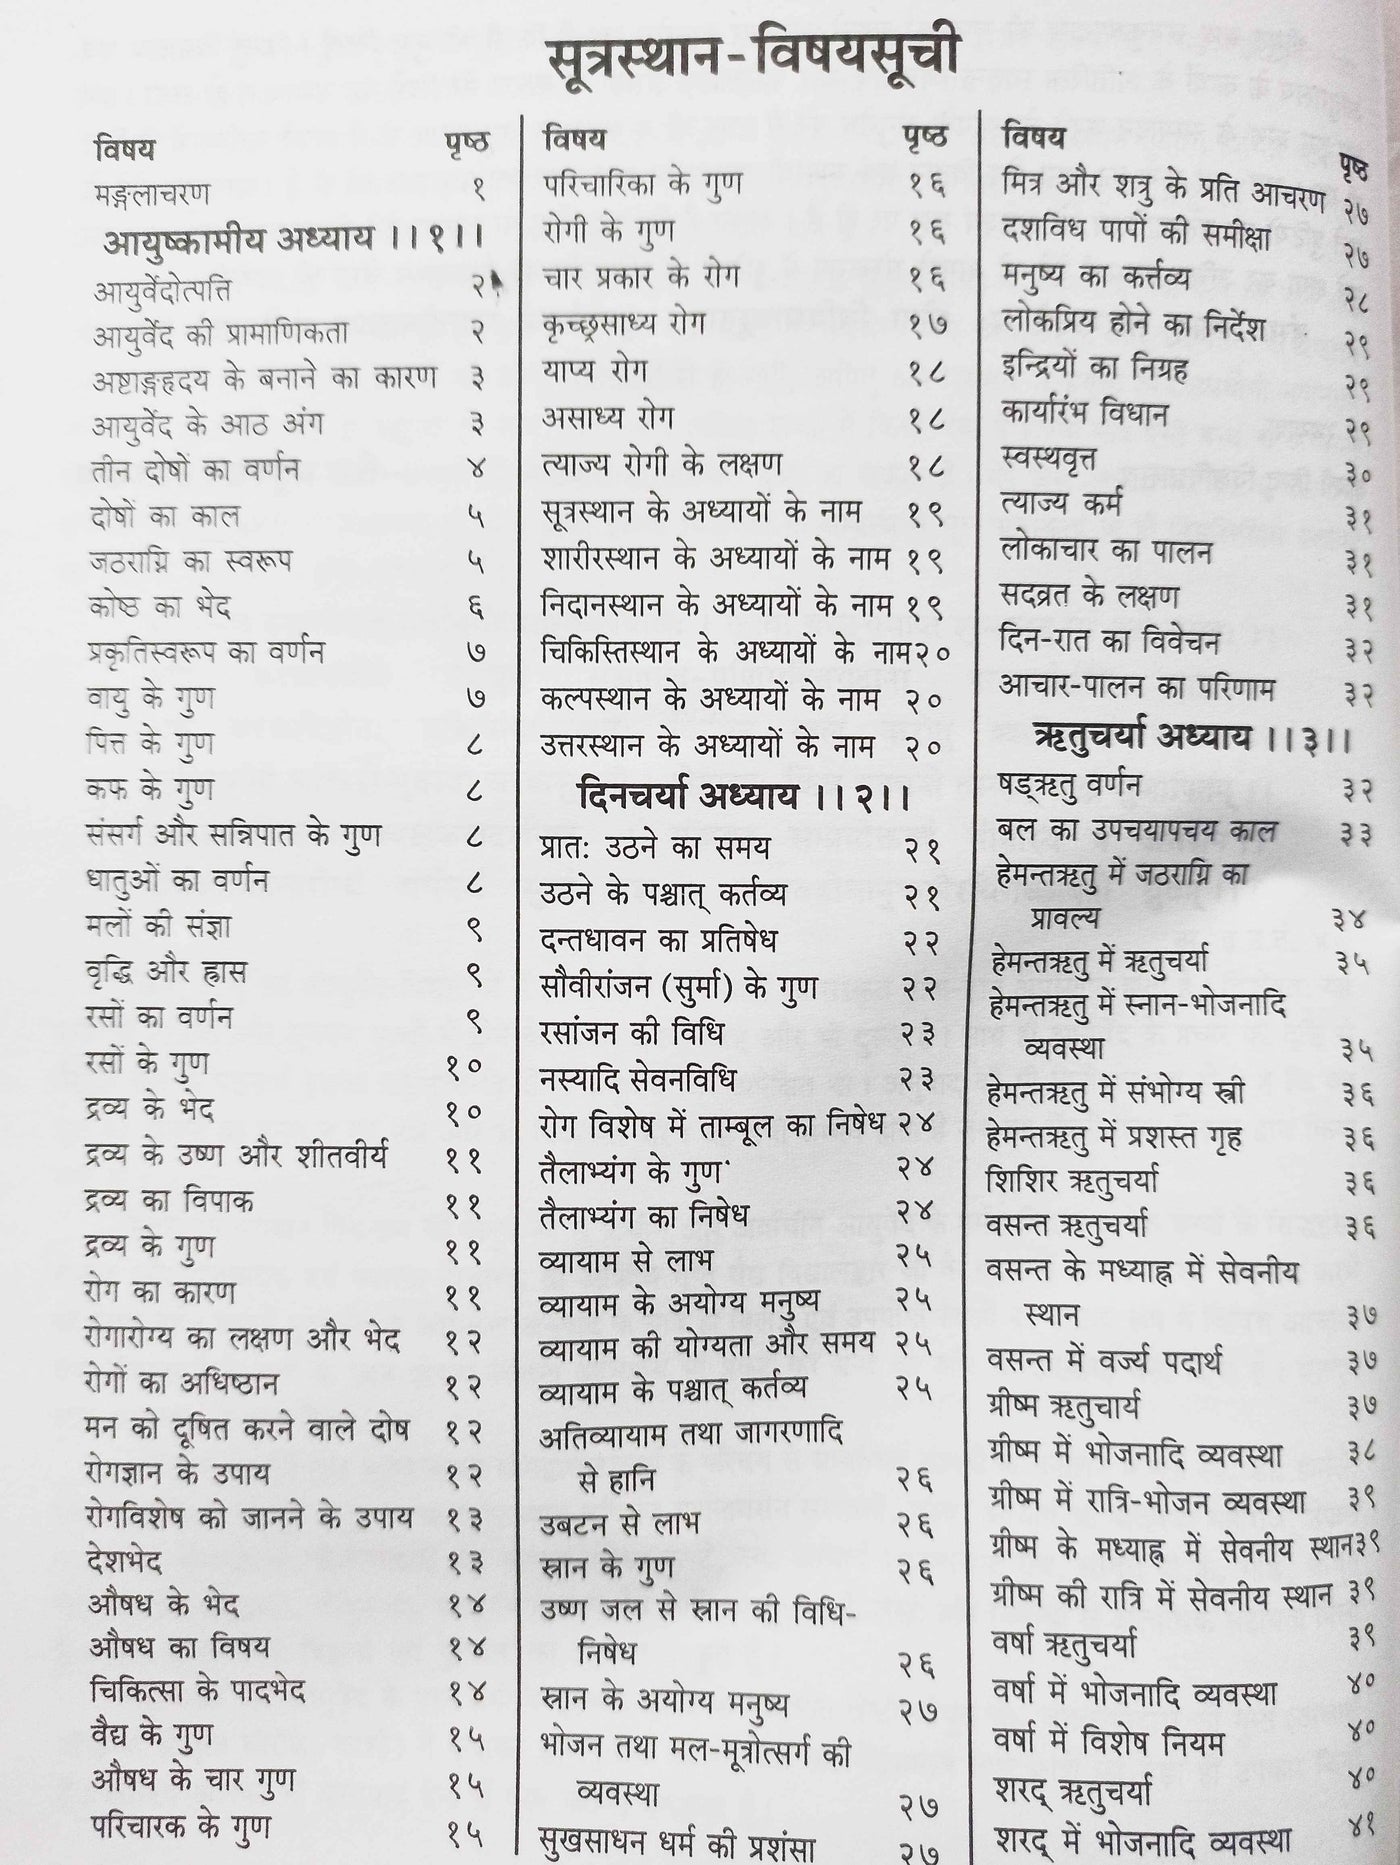 सूत्रस्थान-विषयसूची
विषय पृष्ठ
मङ्गलाचरण १
आयुष्कामीय अध्याय ।।१।।
आयुर्वेदोत्पत्ति २
आयुर्वेद की प्रामाणिकता २
अष्टाङ्गहृदय के बनाने का कारण ३
आयुर्वेद के आठ अंग ३
तीन दोषों का वर्णन ४
दोषों का काल ५
जठराग्नि का स्वरूप ५
कोष्ठ का भेद ६
प्रकृतिस्वरूप का वर्णन ७
वायु के गुण ७
पित्त के गुण ८
कफ के गुण ८
संसर्ग और सन्निपात के गुण ८
धातुओं का वर्णन ८
मलों की संज्ञा ९
वृद्धि और ह्रास ९
रसों का वर्णन ९
रसों के गुण १०
द्रव्य के भेद १०
द्रव्य के उष्ण और शीतवीर्य ११
द्रव्य का विपाक ११
द्रव्य के गुण ११
रोग का कारण ११
रोगारोग्य का लक्षण और भेद १२
रोगों का अधिष्ठान १२
मन को दूषित करने वाले दोष १२
रोगज्ञान के उपाय १२
रोगविशेष को जानने के उपाय १३
देशभेद १३
औषध के भेद १४
औषध का विषय १४
चिकित्सा के पादभेद १४
वैद्य के गुण १५
औषध के चार गुण १५
परिचारक के गुण १५
विषय पृष्ठ
परिचारिका के गुण १६
रोगी के गुण १६
चार प्रकार के रोग १६
कृच्छ्रसाध्य रोग १७
याप्य रोग १८
असाध्य रोग १८
त्याज्य रोगी के लक्षण १८
सूत्रस्थान के अध्यायों के नाम १९
शारीरस्थान के अध्यायों के नाम १९
निदानस्थान के अध्यायों के नाम १९
चिकिस्तिस्थान के अध्यायों के नाम २०
कल्पस्थान के अध्यायों के नाम २०
उत्तरस्थान के अध्यायों के नाम २०
दिनचर्या अध्याय ।।२।।
प्रात: उठने का समय २१
उठने के पश्चात् कर्तव्य २१
दन्तधावन का प्रतिषेध २२
सौवीरांजन (सुर्मा) के गुण २२
रसांजन की विधि २३
नस्यादि सेवनविधि २३
रोग विशेष में ताम्बूल का निषेध २४
तैलाभ्यंग के गुण २४
तैलाभ्यंग का निषेध २४
व्यायाम से लाभ २५
व्यायाम के अयोग्य मनुष्य २५
व्यायाम की योग्यता और समय २५
व्यायाम के पश्चात् कर्तव्य २५
अतिव्यायाम तथा जागरणादि
से हानि २६
उबटन से लाभ २६
स्नान के गुण २६
उष्ण जल से स्नान की विधि-
निषेध २६
स्नान के अयोग्य मनुष्य २७
भोजन तथा मल-मूत्रोत्सर्ग की
व्यवस्था २७
सुखसाधन धर्म की प्रशंसा २७
विषय पृष्ठ
मित्र और शत्रु के प्रति आचरण २७
दशविध पापों की समीक्षा २७
मनुष्य का कर्त्तव्य २८
लोकप्रिय होने का निर्देश २९
इन्द्रियों का निग्रह २९
कार्यारंभ विधान २९
स्वस्थवृत्त ३०
त्याज्य कर्म ३१
लोकाचार का पालन ३१
सदव्रत के लक्षण ३१
दिन-रात का विवेचन ३२
आचार-पालन का परिणाम ३२
ऋतुचर्या अध्याय ।।३।।
षड्ऋतु वर्णन ३२
बल का उपचयापचय काल ३३
हेमन्तऋतु में जठराग्नि का
प्रावल्य ३४
हेमन्तऋतु में ऋतुचर्या ३५
हेमन्तऋतु में स्नान-भोजनादि
व्यवस्था ३५
हेमन्तऋतु में संभोग्य स्त्री ३६
हेमन्तऋतु में प्रशस्त गृह ३६
शिशिर ऋतुचर्या ३६
वसन्त ऋतुचर्या ३६
वसन्त के मध्याह्न में सेवनीय
स्थान ३७
वसन्त में वर्ज्य पदार्थ ३७
ग्रीष्म ऋतुचार्य ३७
ग्रीष्म में भोजनादि व्यवस्था ३८
ग्रीष्म में रात्रि-भोजन व्यवस्था ३९
ग्रीष्म के मध्याह्न में सेवनीय स्थान ३९
ग्रीष्म की रात्रि में सेवनीय स्थान ३९
वर्षा ऋतुचर्या ३९
वर्षा में भोजनादि व्यवस्था ४०
वर्षा में विशेष नियम ४०
शरद् ऋतुचर्या ४०
शरद् में भोजनादि व्यवस्था ४१